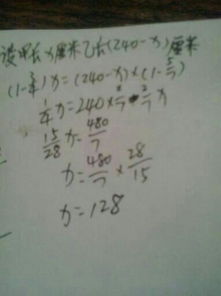 设甲长x厘米乙长(240-x)厘米
(1-3/4)x=(240-x)×(1-5/7)
1/4x=240×2/7-2/7x
15/28x=480/7
x=480/7×28/15
x=128